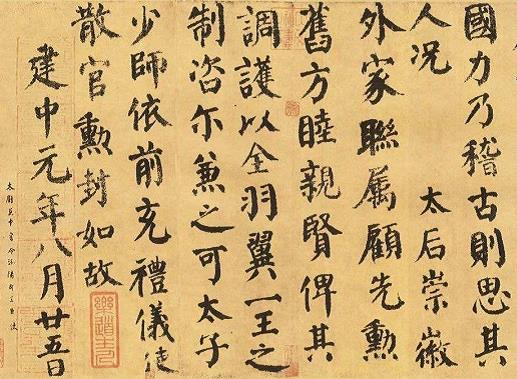 國力乃稽古則思其
人況 太后崇徽
外家聯属顧先勲
舊方睦親賢俾其
調護以全羽翼一王之
制咨尔兼之可太子
少師依前充禮儀使
散官勲封如故
建中元年八月廿五日